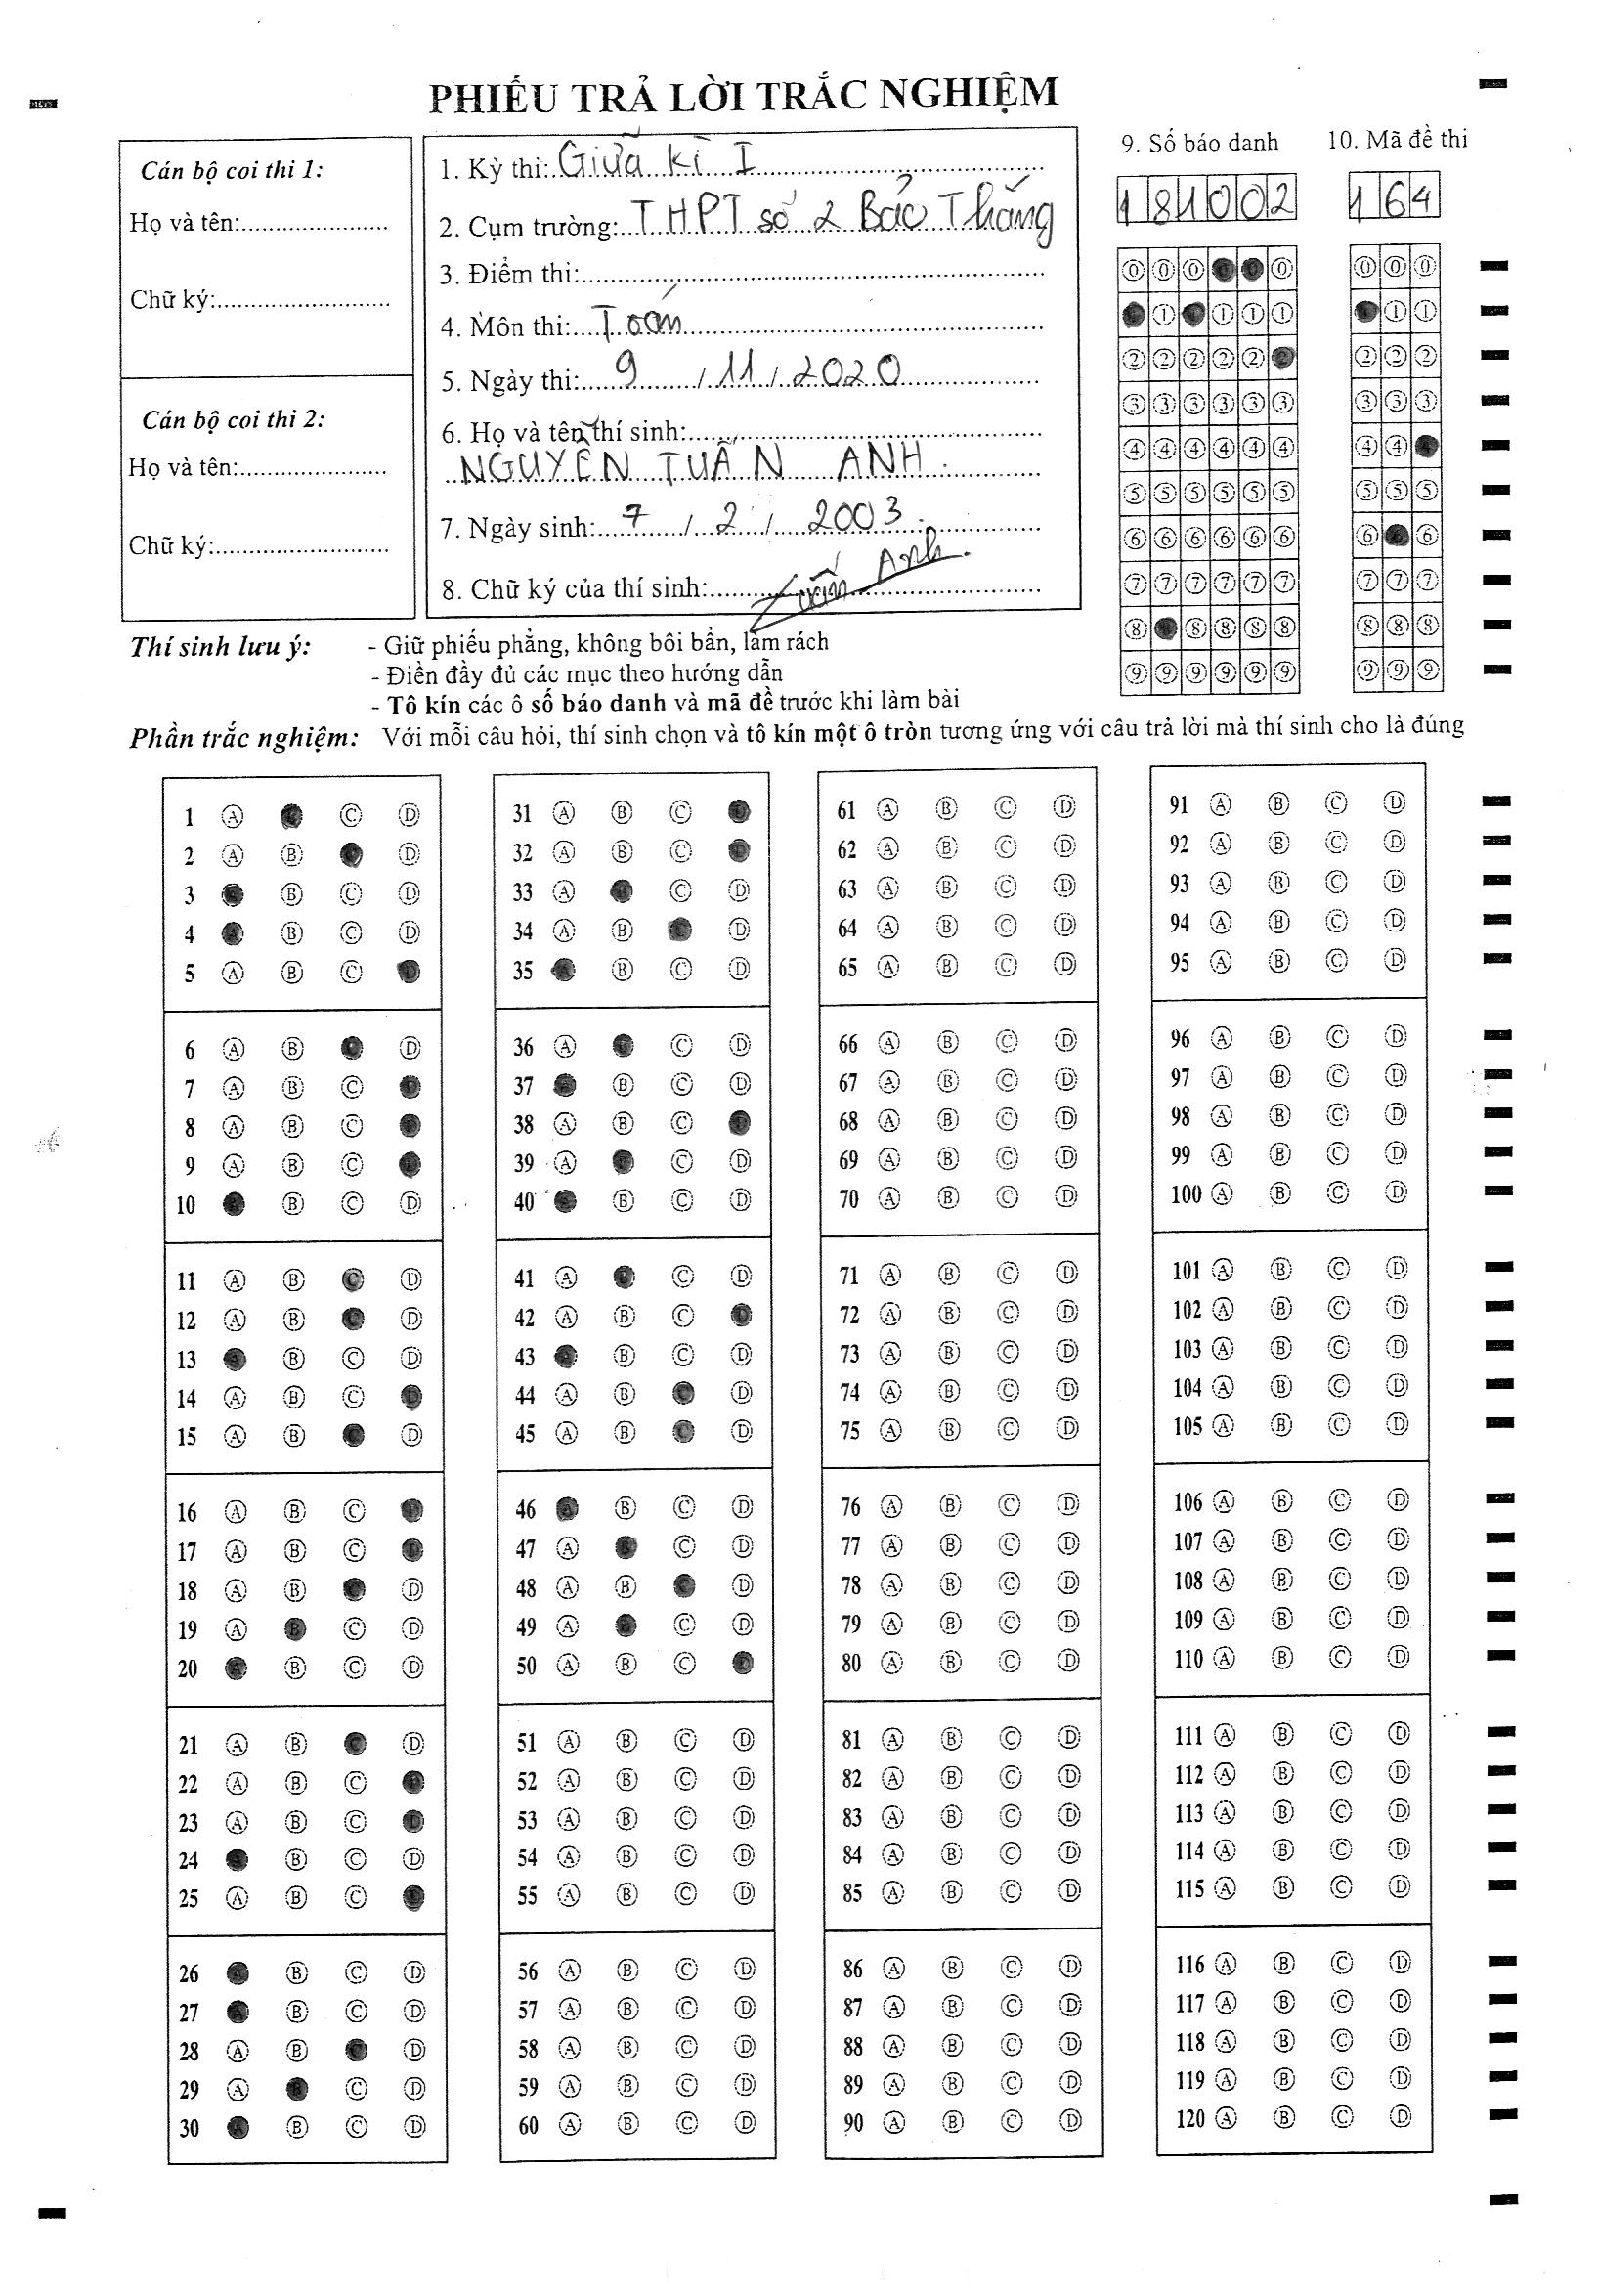 PHIẾU TRẢ LỜI TRẮC NGHIỆM
Cán bộ coi thi 1:
Họ và tên:
Chữ ký:
Cán bộ coi thi 2:
Họ và tên:
Chữ ký:
1. Kỳ thi: Giữa kì I
2. Cụm trường: THPT số 2 Bảo Thắng
3. Điểm thi:
4. Môn thi: Toán
5. Ngày thi: 9 / 11 / 2020
6. Họ và tên thí sinh:
NGUYỄN TUẤN ANH
7. Ngày sinh: 7 / 2 / 2003
8. Chữ ký của thí sinh: Tuấn Anh
9. Số báo danh
181002
10. Mã đề thi
164
0 0 0 0 0 0 0
1 1 1 1 1 1
2 2 2 2 2 2 2 2
3 3 3 3 3 3 3 3 3
4 4 4 4 4 4 4 4 4
5 5 5 5 5 5 5 5 5
6 6 6 6 6 6 6 6
7 7 7 7 7 7 7 7 7
8 8 8 8 8 8 8 8 8
9 9 9 9 9 9 9 9 9
Thí sinh lưu ý: - Giữ phiếu phẳng, không bôi bẩn, làm rách
- Điền đầy đủ các mục theo hướng dẫn
- Tô kín các ô số báo danh và mã đề trước khi làm bài
Phần trắc nghiệm: Với mỗi câu hỏi, thí sinh chọn và tô kín một ô tròn tương ứng với câu trả lời mà thí sinh cho là đúng
1 A C D
2 A B D
3 B C D
4 A B C D
5 A B C
6 A B D
7 A B C
8 A B C
9 A B C
10 B C D
11 A B C D
12 A B C D
13 B C D
14 A B C D
15 A B D
16 A B C
17 A B C
18 A B D
19 A B C D
20 B C D
21 A B C D
22 A B C
23 A B C D
24 B C D
25 A B C
26 B C D
27 B C D
28 A B D
29 A C D
30 B C D
31 A B C
32 A B C
33 A C D
34 A B C D
35 B C D
36 A C D
37 B C D
38 A B C
39 A C D
40 B C D
41 A C D
42 A B C
43 B C D
44 A B C D
45 A B C D
46 B C D
47 A C D
48 A B D
49 A C D
50 A B C
51 A B C D
52 A B C D
53 A B C D
54 A B C D
55 A B C D
56 A B C D
57 A B C D
58 A B C D
59 A B C D
60 A B C D
61 A B C D
62 A B C D
63 A B C D
64 A B C D
65 A B C D
66 A B C D
67 A B C D
68 A B C D
69 A B C D
70 A B C D
71 A B C D
72 A B C D
73 A B C D
74 A B C D
75 A B C D
76 A B C D
77 A B C D
78 A B C D
79 A B C D
80 A B C D
81 A B C D
82 A B C D
83 A B C D
84 A B C D
85 A B C D
86 A B C D
87 A B C D
88 A B C D
89 A B C D
90 A B C D
91 A B C D
92 A B C D
93 A B C D
94 A B C D
95 A B C D
96 A B C D
97 A B C D
98 A B C D
99 A B C D
100 A B C D
101 A B C D
102 A B C D
103 A B C D
104 A B C D
105 A B C D
106 A B C D
107 A B C D
108 A B C D
109 A B C D
110 A B C D
111 A B C D
112 A B C D
113 A B C D
114 A B C D
115 A B C D
116 A B C D
117 A B C D
118 A B C D
119 A B C D
120 A B C D